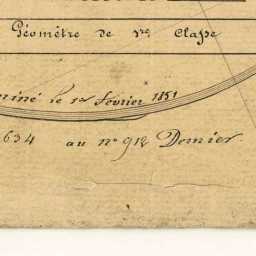 Géomètre de 1re Classe
miné le 1er février 1851
634 au n° 912 Dernier.